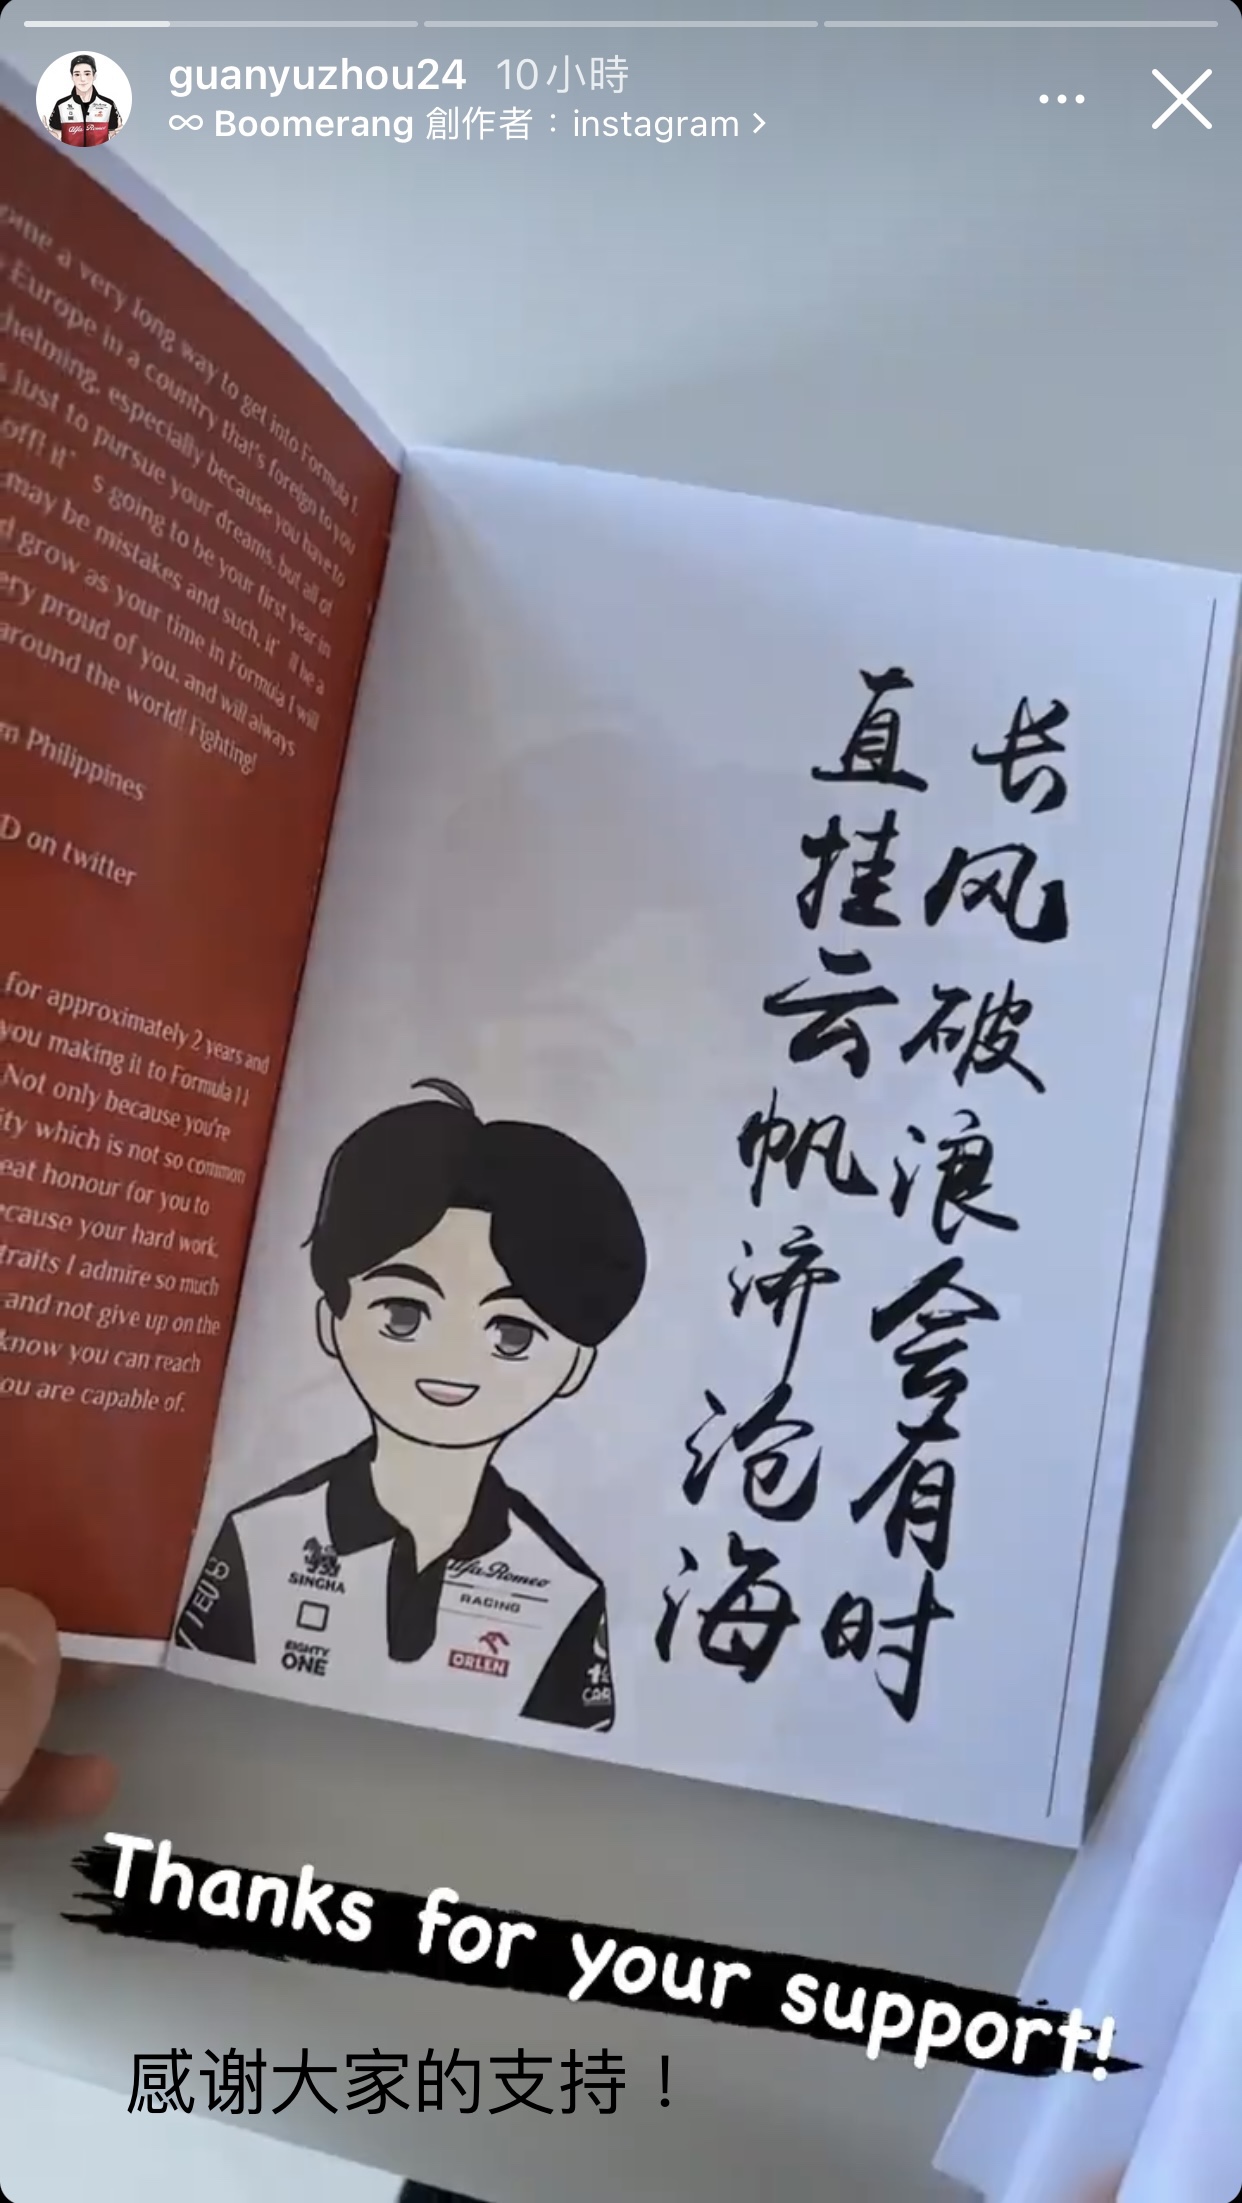 guanyuzhou24 10小時
Boomerang 創作者：instagram
a very long way to get into Formula 1,
Europe in a country that's foreign to you
especially because you have to
just to pursue your dreams, but all of
off! it' s going to be your first year in
may be mistakes and such, it' ll be a
grow as your time in Formula 1 will
proud of you, and will always
around the world! Fighting!
Philippines
on twitter
for approximately 2 years and
you making it to Formula 1!
Not only because you're
which is not so common
honour for you to
your hard work,
traits I admire so much
and not give up on the
know you can reach
you are capable of.
长风破浪会有时
直挂云帆济沧海
SINGHA
EIGHTY
ONE
Alfa Romeo
RACING
ORLEN
Thanks for your support!
感谢大家的支持！